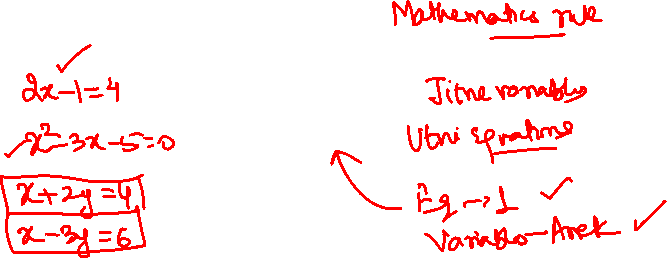 Mathematics rule
2x-1=4
x²-3x-5=0
x+2y=4
x-3y=6
Jitne variables
Utni Equations
Eq → 1
Variable - Anek